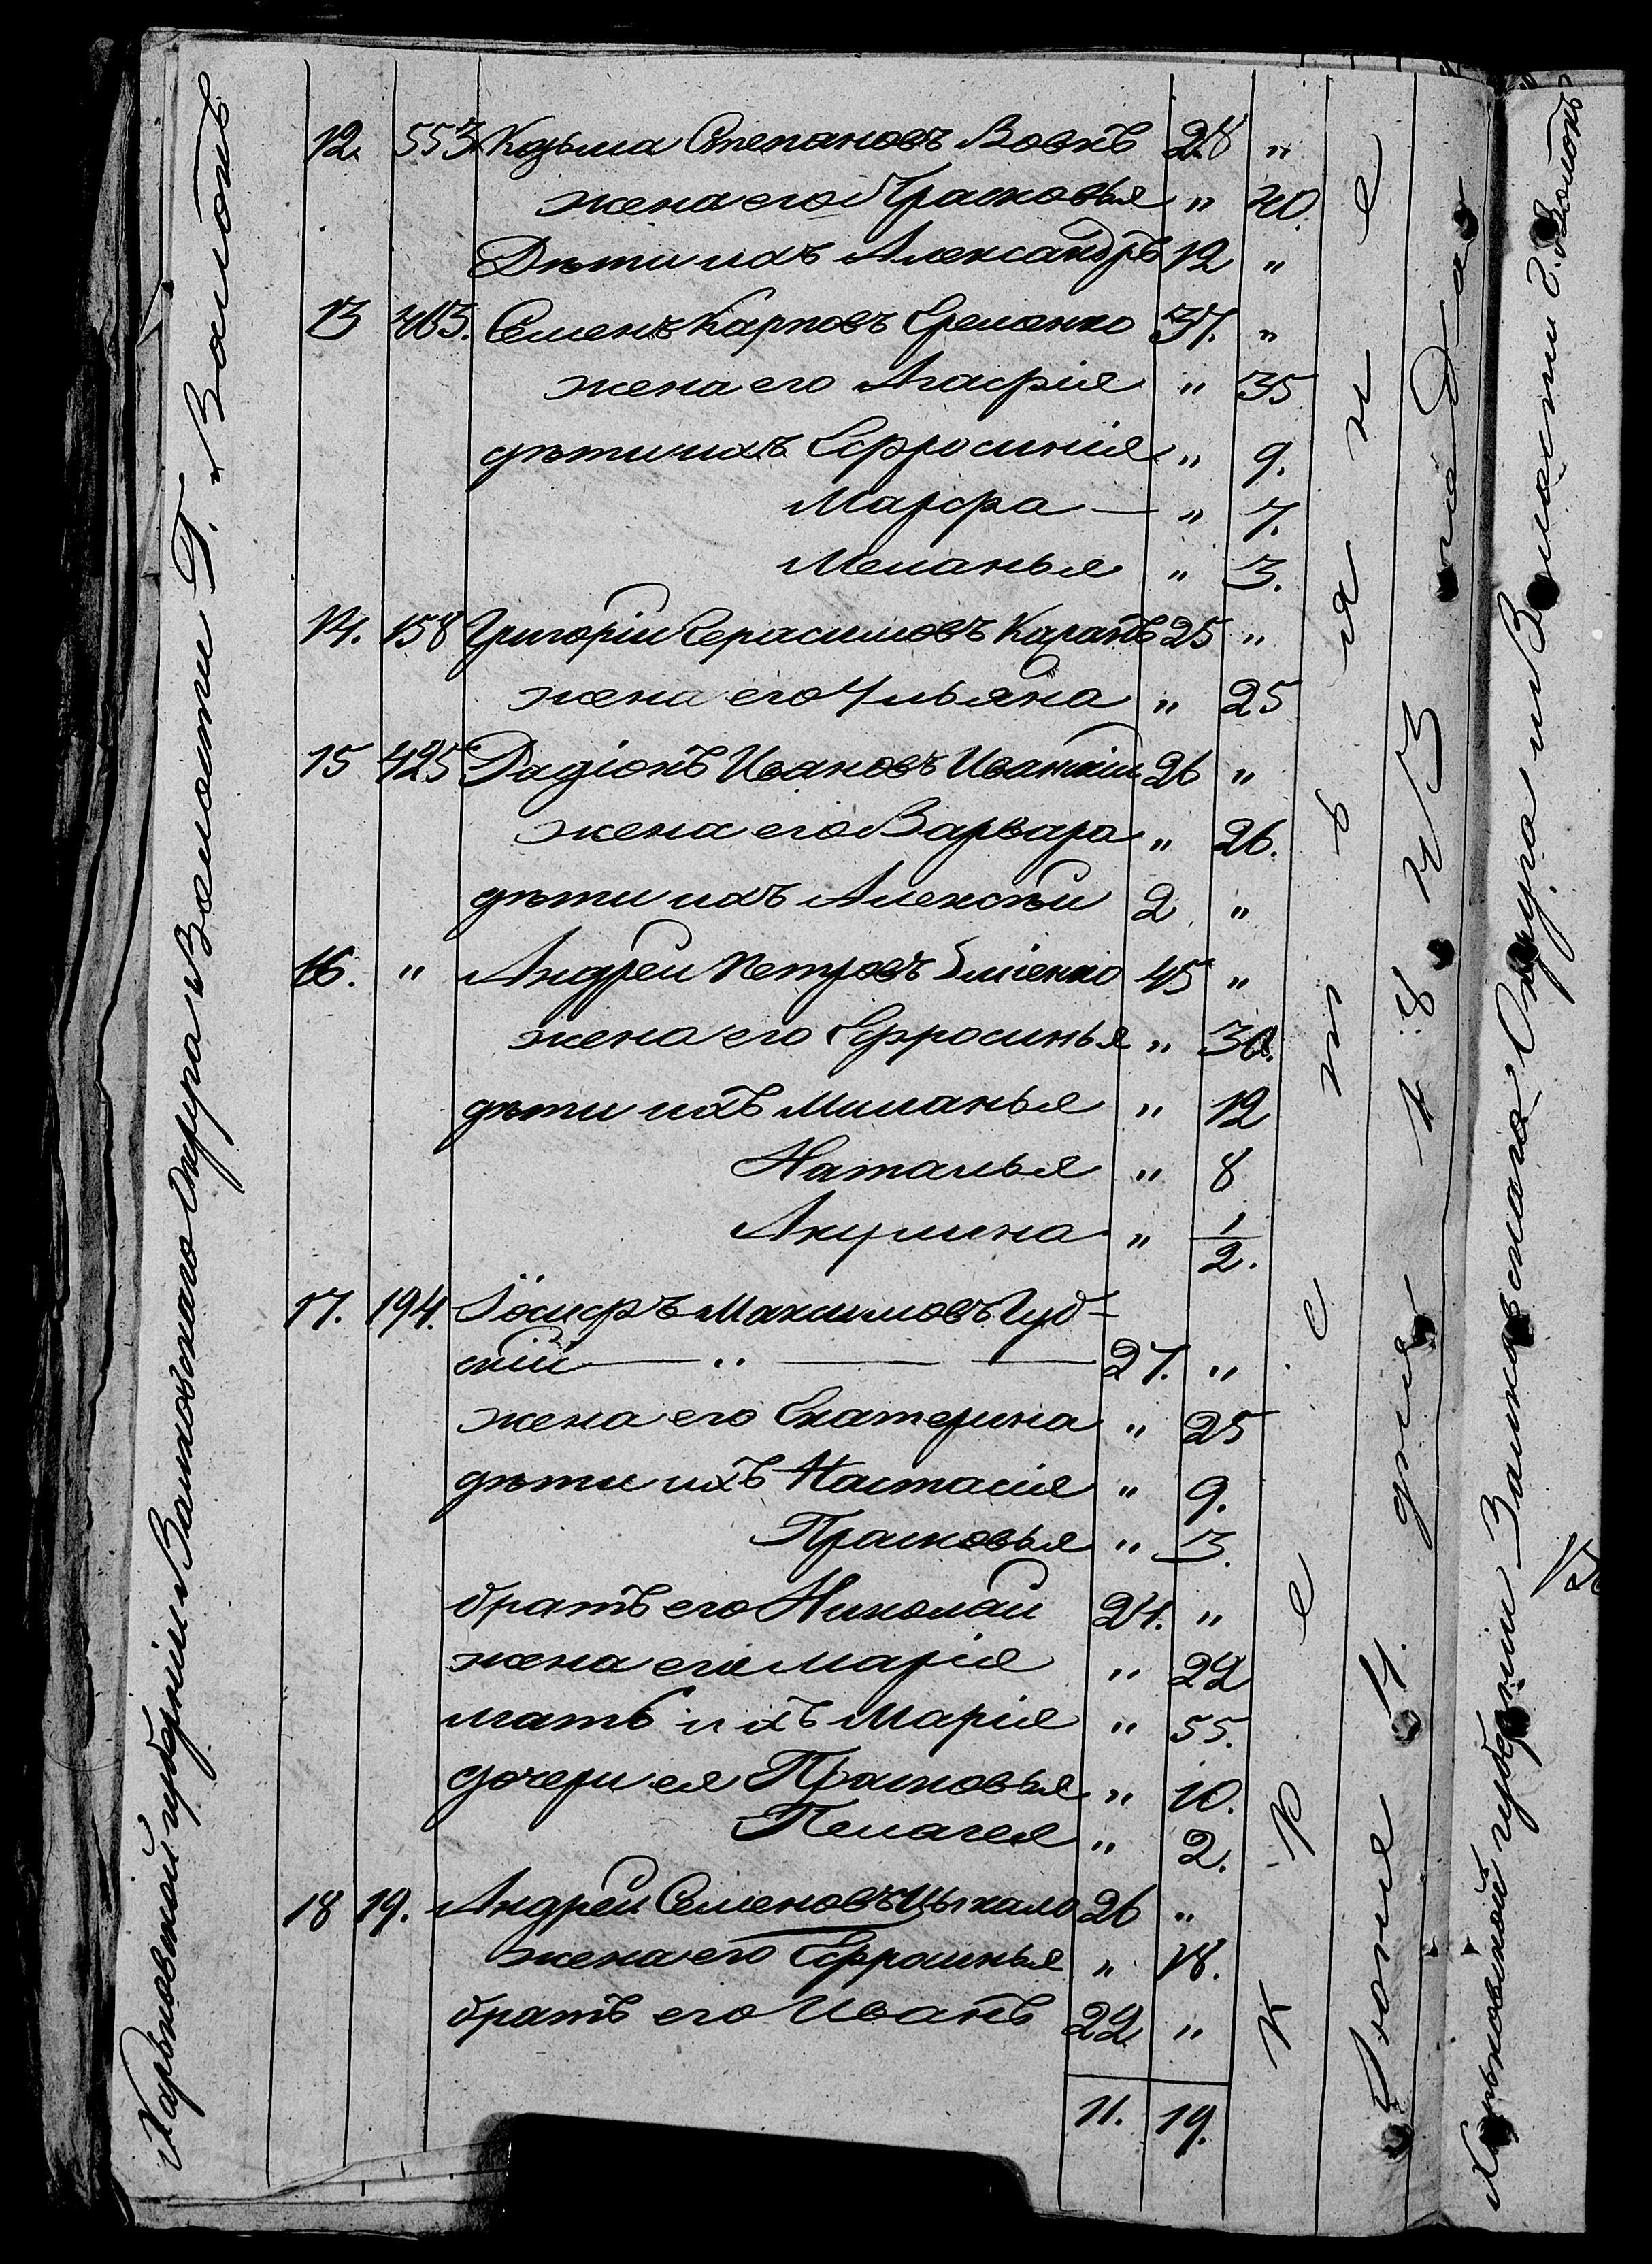 12. 553 Козьма Степановъ Вовкъ 28 "
жена его Прасковья " 40.
Дѣти ихъ Александръ 12 "
13 403. Семенъ Карповъ Еременко 37. "
жена его Агафія " 35
дѣти ихъ Ефросинія " 9.
Марфа — " 7.
Меланья " 3.
14. 158 Григорій Герасимовъ 25 "
жена его Ульяна " 25
15 425 Радіонъ Ивановъ 26 "
жена его Варвара " 26.
дѣти ихъ Алексѣй 2 "
16. " Андрей Петровъ 45 "
жена его Ефросинья " 30.
дѣти ихъ Миланья " 12
Наталья " 8
Акулина " 1/2.
17. 194. Іосифъ Максимовъ Губ-
скій — " — — 27. "
жена его Екатерина " 25
дѣти ихъ Настасія " 9.
Прасковья " 3.
братъ его Николай 24. "
жена его Марія " 22
мать ихъ Марія " 55.
дочери ея Прасковья " 10.
Пелагея " 2.
18 19. Андрей Семеновъ Цыкало 26 "
жена его Ефросинья " 18.
братъ его Иванъ 22 "
11. 19.
Харьковской губерніи Валковскаго Округа и Волости Г. Валокъ
Крестьяне
Іюня 4. дня 1843 года
Харьковской губерніи Валковскаго Округа и Волости г. Валокъ